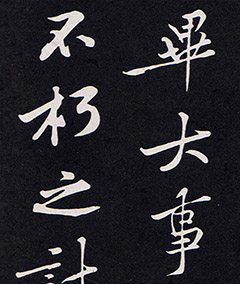 畢大事
不朽之計